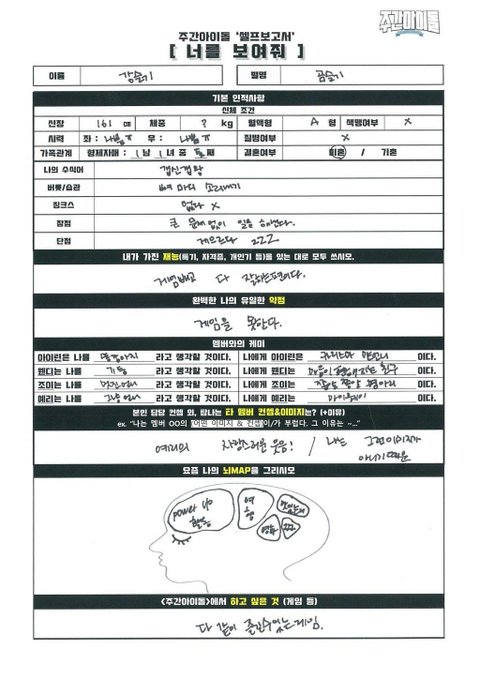 주간아이돌
주간아이돌 '셀프보고서'
[ 너를 보여줘 ]
이름 강슬기 별명 곰슬기
기본 인적사항
신체 조건
신장 161 cm 체중 ? kg 혈액형 A 형 색맹여부 X
시력 좌 : 나쁨 ㅠ 우 : 나쁨 ㅠ 질병여부 X
가족관계 형제자매 : 1 남 1 녀 중 둘 째 결혼여부 미혼 / 기혼
나의 수식어 갭신갭왕
버릇/습관 뼈 마디 소리내기
징크스 없다 X
장점 큰 문제 없이 일을 해낸다.
단점 게으르다 zzz
내가 가진 재능(특기, 자격증, 개인기 등)을 있는 대로 모두 쓰시오.
게임빼고 다 잘하는편이다.
완벽한 나의 유일한 약점
게임을 못한다.
멤버와의 케미
아이린은 나를 라고 생각할 것이다. 나에게 아이린은 이다.
웬디는 나를 기둥 라고 생각할 것이다. 나에게 웬디는 친구 이다.
조이는 나를 라고 생각할 것이다. 나에게 조이는 병아리 이다.
예리는 나를 라고 생각할 것이다. 나에게 예리는 마이웨이 이다.
본인 담당 컨셉 외, 탐나는 타 멤버 컨셉&이미지는? (+이유)
ex. "나는 멤버 OO의 [어떤 이미지 & 컨셉]이/가 부럽다. 그 이유는 ~..."
예리의 사랑스러운 웃음! / 나는 그런이미지가
아니기때문
요즘 나의 뇌MAP을 그리시오
power up
활동
여
행
영화
zzz
<주간아이돌>에서 하고 싶은 것 (게임 등)
다 같이 즐길수있는게임.